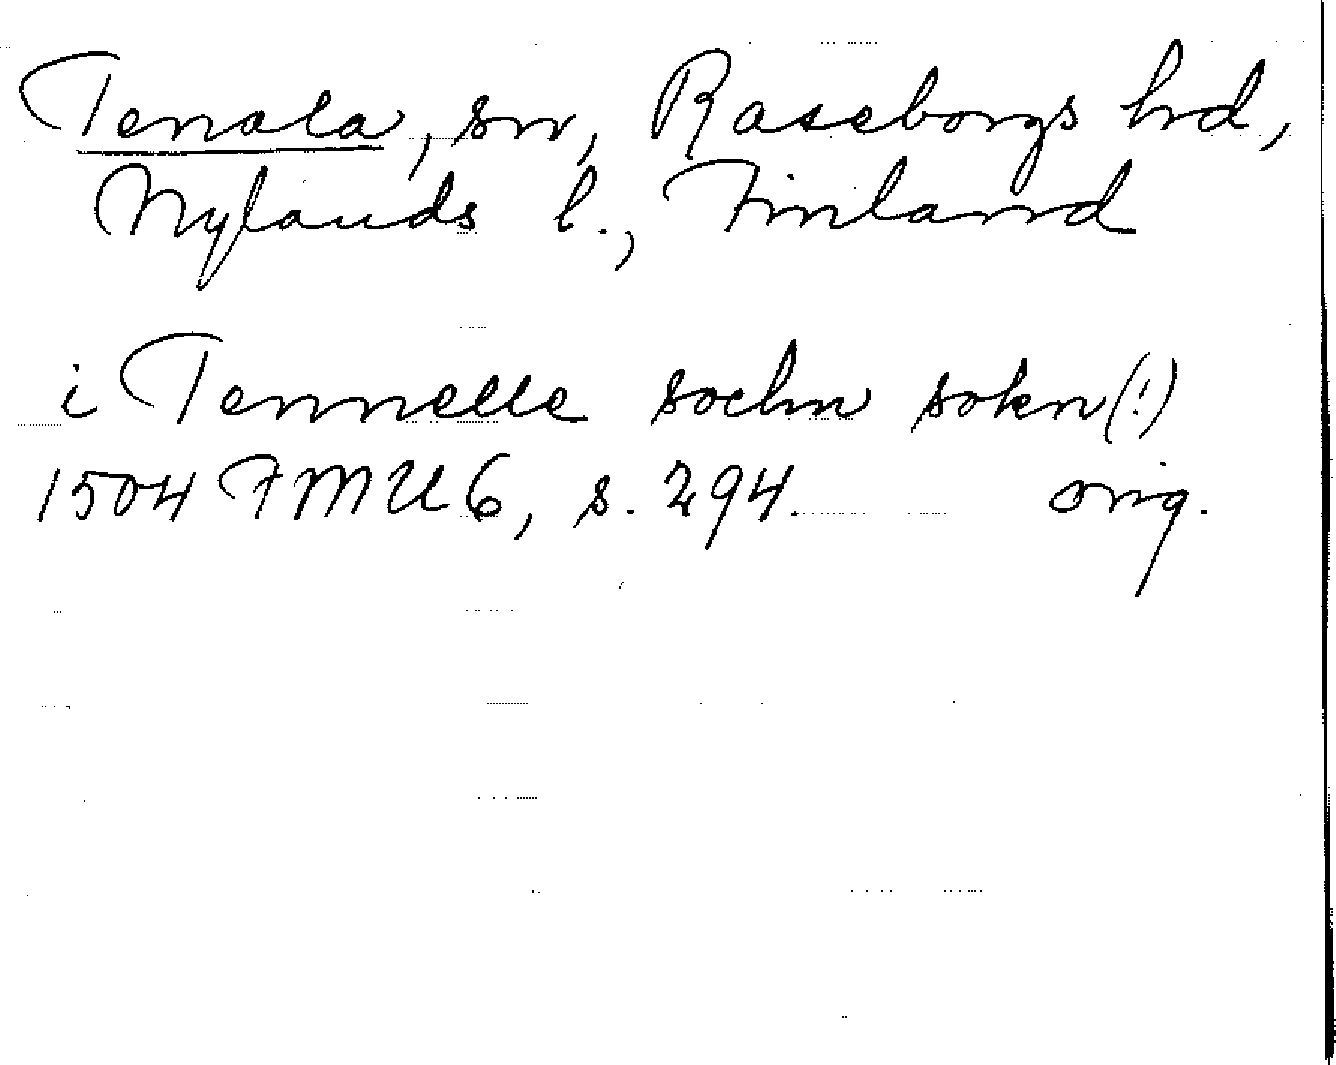 Tenala, sn, Raseborgs hd,
Nylands l., Finland
i Tennelle sochn sokn(!)
1504 FMU 6, s. 294. orig.